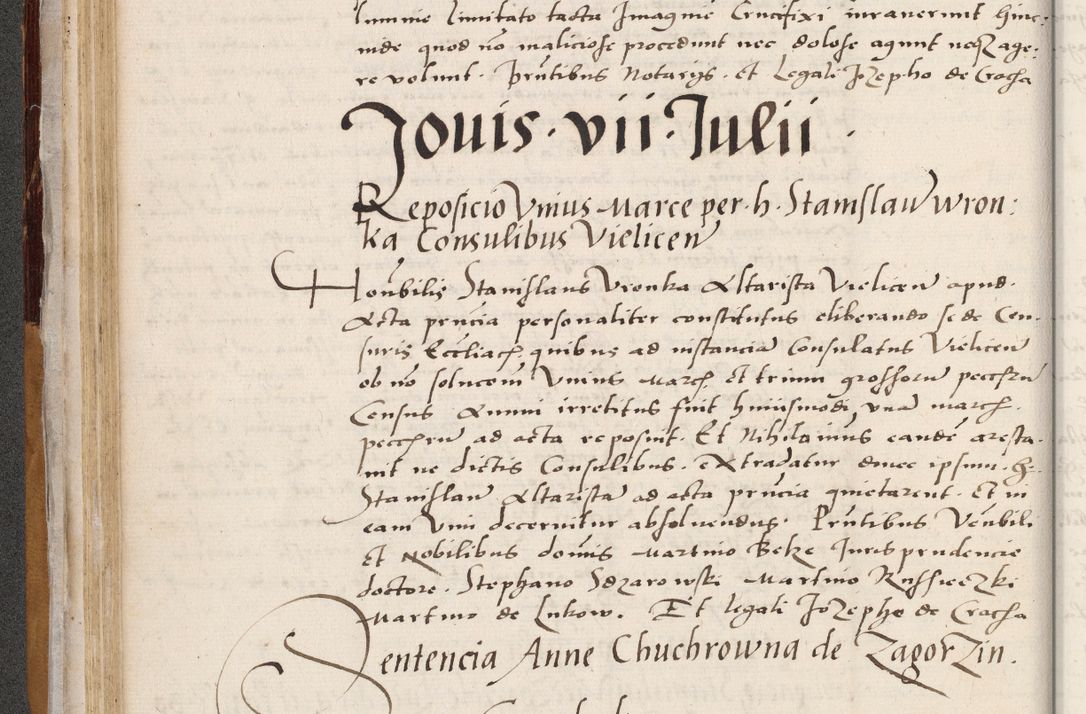 lumine limitato tacta Imagine Crucifixi iuraverunt hinc
inde quod nō maliciose procedunt nec dolose agunt neqz age-
re volunt. Prntibus Notarijs. et Legali Jozepho de Crac̄ha
Jouis. vii. Iulii.
Reposicio Vnius Marce per. h. Stanislaū Wron:
ka Consulibus Vielicen̄
Honbilis Stanislaus Vronka Altarista Vielicen̄ apud.
Acta prn̄cia personaliter constitutus eliberando se de Cen-
suris Eccliach. quibus ad instanciā Consulatus Vielicen̄
ob nō solucom̄ Vnius March. et trium grossorū peccsrū
Census Annui irretitus fuit huiusmodi vnā march.
peccsrū ad acta reposuit. Et Nihilominus eandē aresta-
uit ne dictis Consulibus. extradatur donec ipsum. h.
Stanislaū Altaristā ad acta prn̄cia quietarent. Et in
eam Vim decernitur absoluendus. Prn̄tibus Venbili
et Nobilibus domis Martino Belze Iuris prudencie
doctore. Stephano Sdzarowski Martino Russieczki
Martino de Lukow. Et legali Jozepho de Crac̄ha
Sentencia Anne Chuchrowna de Zagorzin.